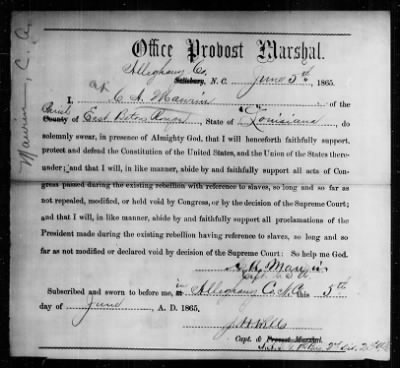 Office Provost Marshal.
Alleghany Co.
Salisbury, N. C. June 5th 1865.
I, C. A. Mawrin of the
Parish
County of East Baton Rouge, State of Louisiana, do
solemnly swear, in presence of Almighty God, that I will henceforth faithfully support,
protect and defend the Constitution of the United States, and the Union of the States there
under; and that I will, in like manner, abide by and faithfully support all acts of Con-
gress passed during the existing rebellion with reference to slaves, so long and so far
as not repealed, modified, or held void by Congress, or by the decision of the Supreme Court;
and that I will, in like manner, abide by and faithfully support all proclamations of the
President made during the existing rebellion having reference to slaves, so long and so
far as not modified or declared void by decision of the Supreme Court: So help me God.
Subscribed and sworn to before me, at Alleghany Co. N.C. this 5th
day of June, A. D. 1865,
Capt. & Provost Marshal.